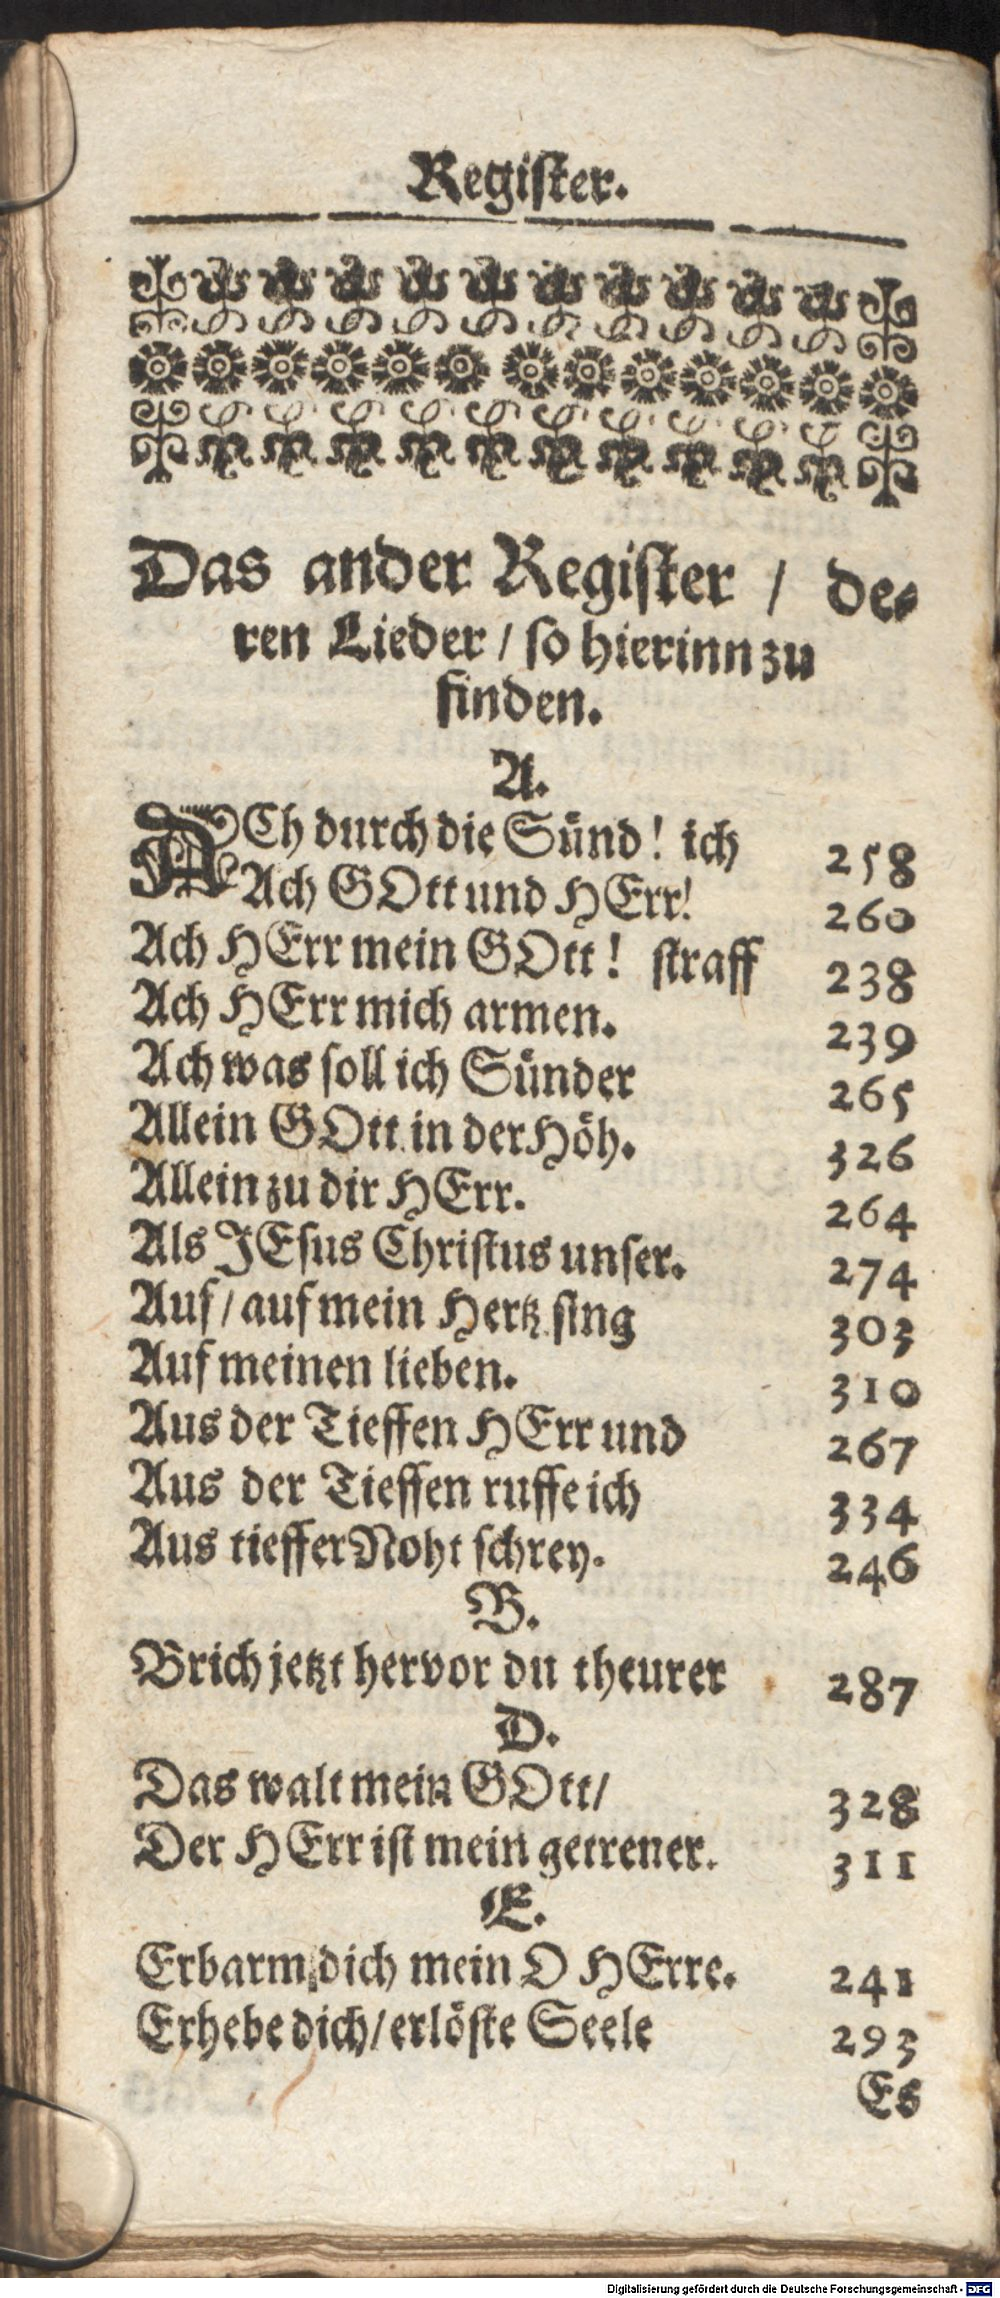 Register.
Das ander Register / de⸗
ren Lieder / so hierinn zu
finden.
A.
ACh durch die Sünd! ich 258
Ach GOtt und HErr! 260
Ach HErr mein GOtt! straff 238
Ach HErr mich armen. 239
Ach was soll ich Sünder 265
Allein GOtt in der Höh. 326
Allein zu dir HErr. 264
Als JEsus Christus unser. 274
Auf / auf mein Hertz sing 303
Auf meinen lieben. 310
Aus der Tieffen HErr und 267
Aus der Tieffen ruffe ich 334
Aus tieffer Noht schrey. 246
B.
Brich jetzt hervor du theurer 287
D.
Das walt mein GOtt / 328
Der HErr ist mein getreuer. 311
E.
Erbarm dich mein O HErre. 241
Erhebe dich / erlöste Seele 293
Es
Digitalisierung gefördert durch die Deutsche Forschungsgemeinschaft - DFG